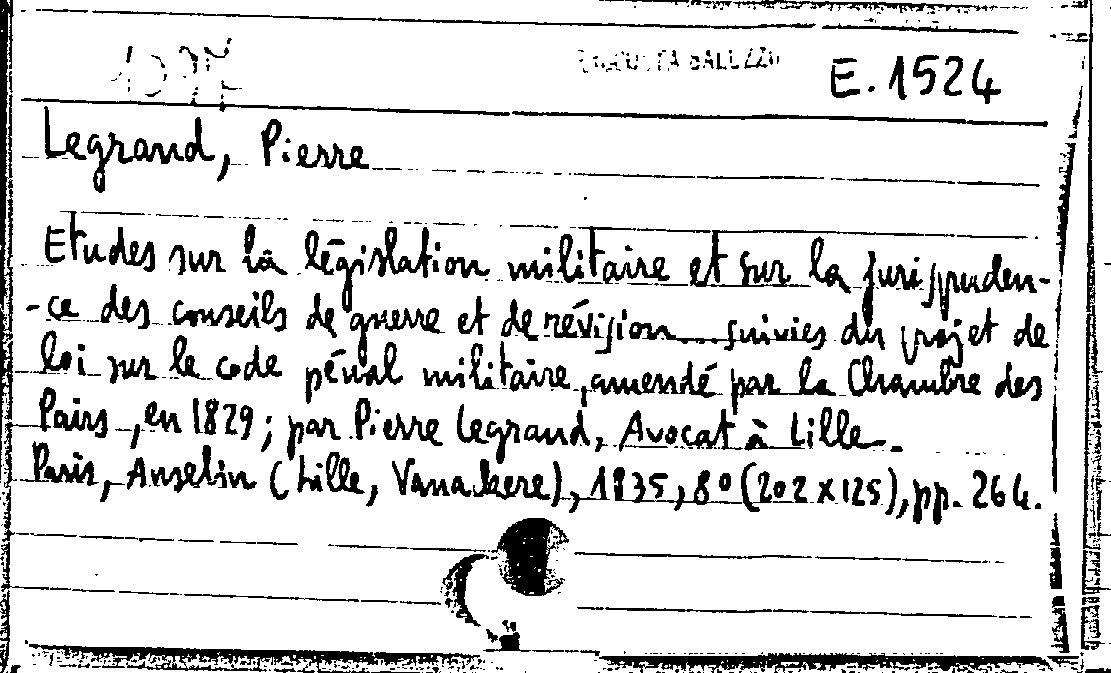 E. 1524
Legrand, Pierre
Etudes sur la législation militaire et sur la jurispruden-
-ce des conseils de guerre et de révision... suivies du projet de
loi sur le code pénal militaire, amendé par la Chambre des
Pairs, en 1829; par Pierre Legrand, Avocat à Lille.
Paris, Anselin (Lille, Vanackere), 1835, 8° (202 x 125), pp. 264.